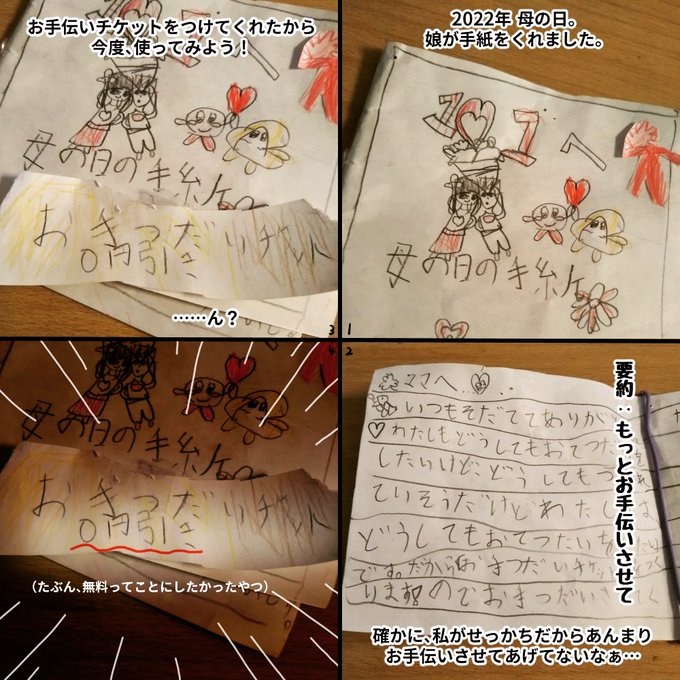 2022年 母の日。
娘が手紙をくれました。
母の日の手紙
1
2
ママへ
いつもそだててありが
わたしもどうしてもおてつだ
したいけど、どうしてもつ
ていそうだけどわたし
どうしてもおてつたいを
です。だからおきつだいチケッ
ります!!のでおきつだい
要約：もっとお手伝いさせて
確かに、私がせっかちだからあんまり
お手伝いさせてあげてないなぁ…
お手伝いチケットをつけてくれたから
今度、使ってみよう！
母の日の手紙
おきつだいチケット
0円引き
……ん？
3
母の日の手紙
おきつだいチケット
0円引き
（たぶん、無料ってことにしたかったやつ）